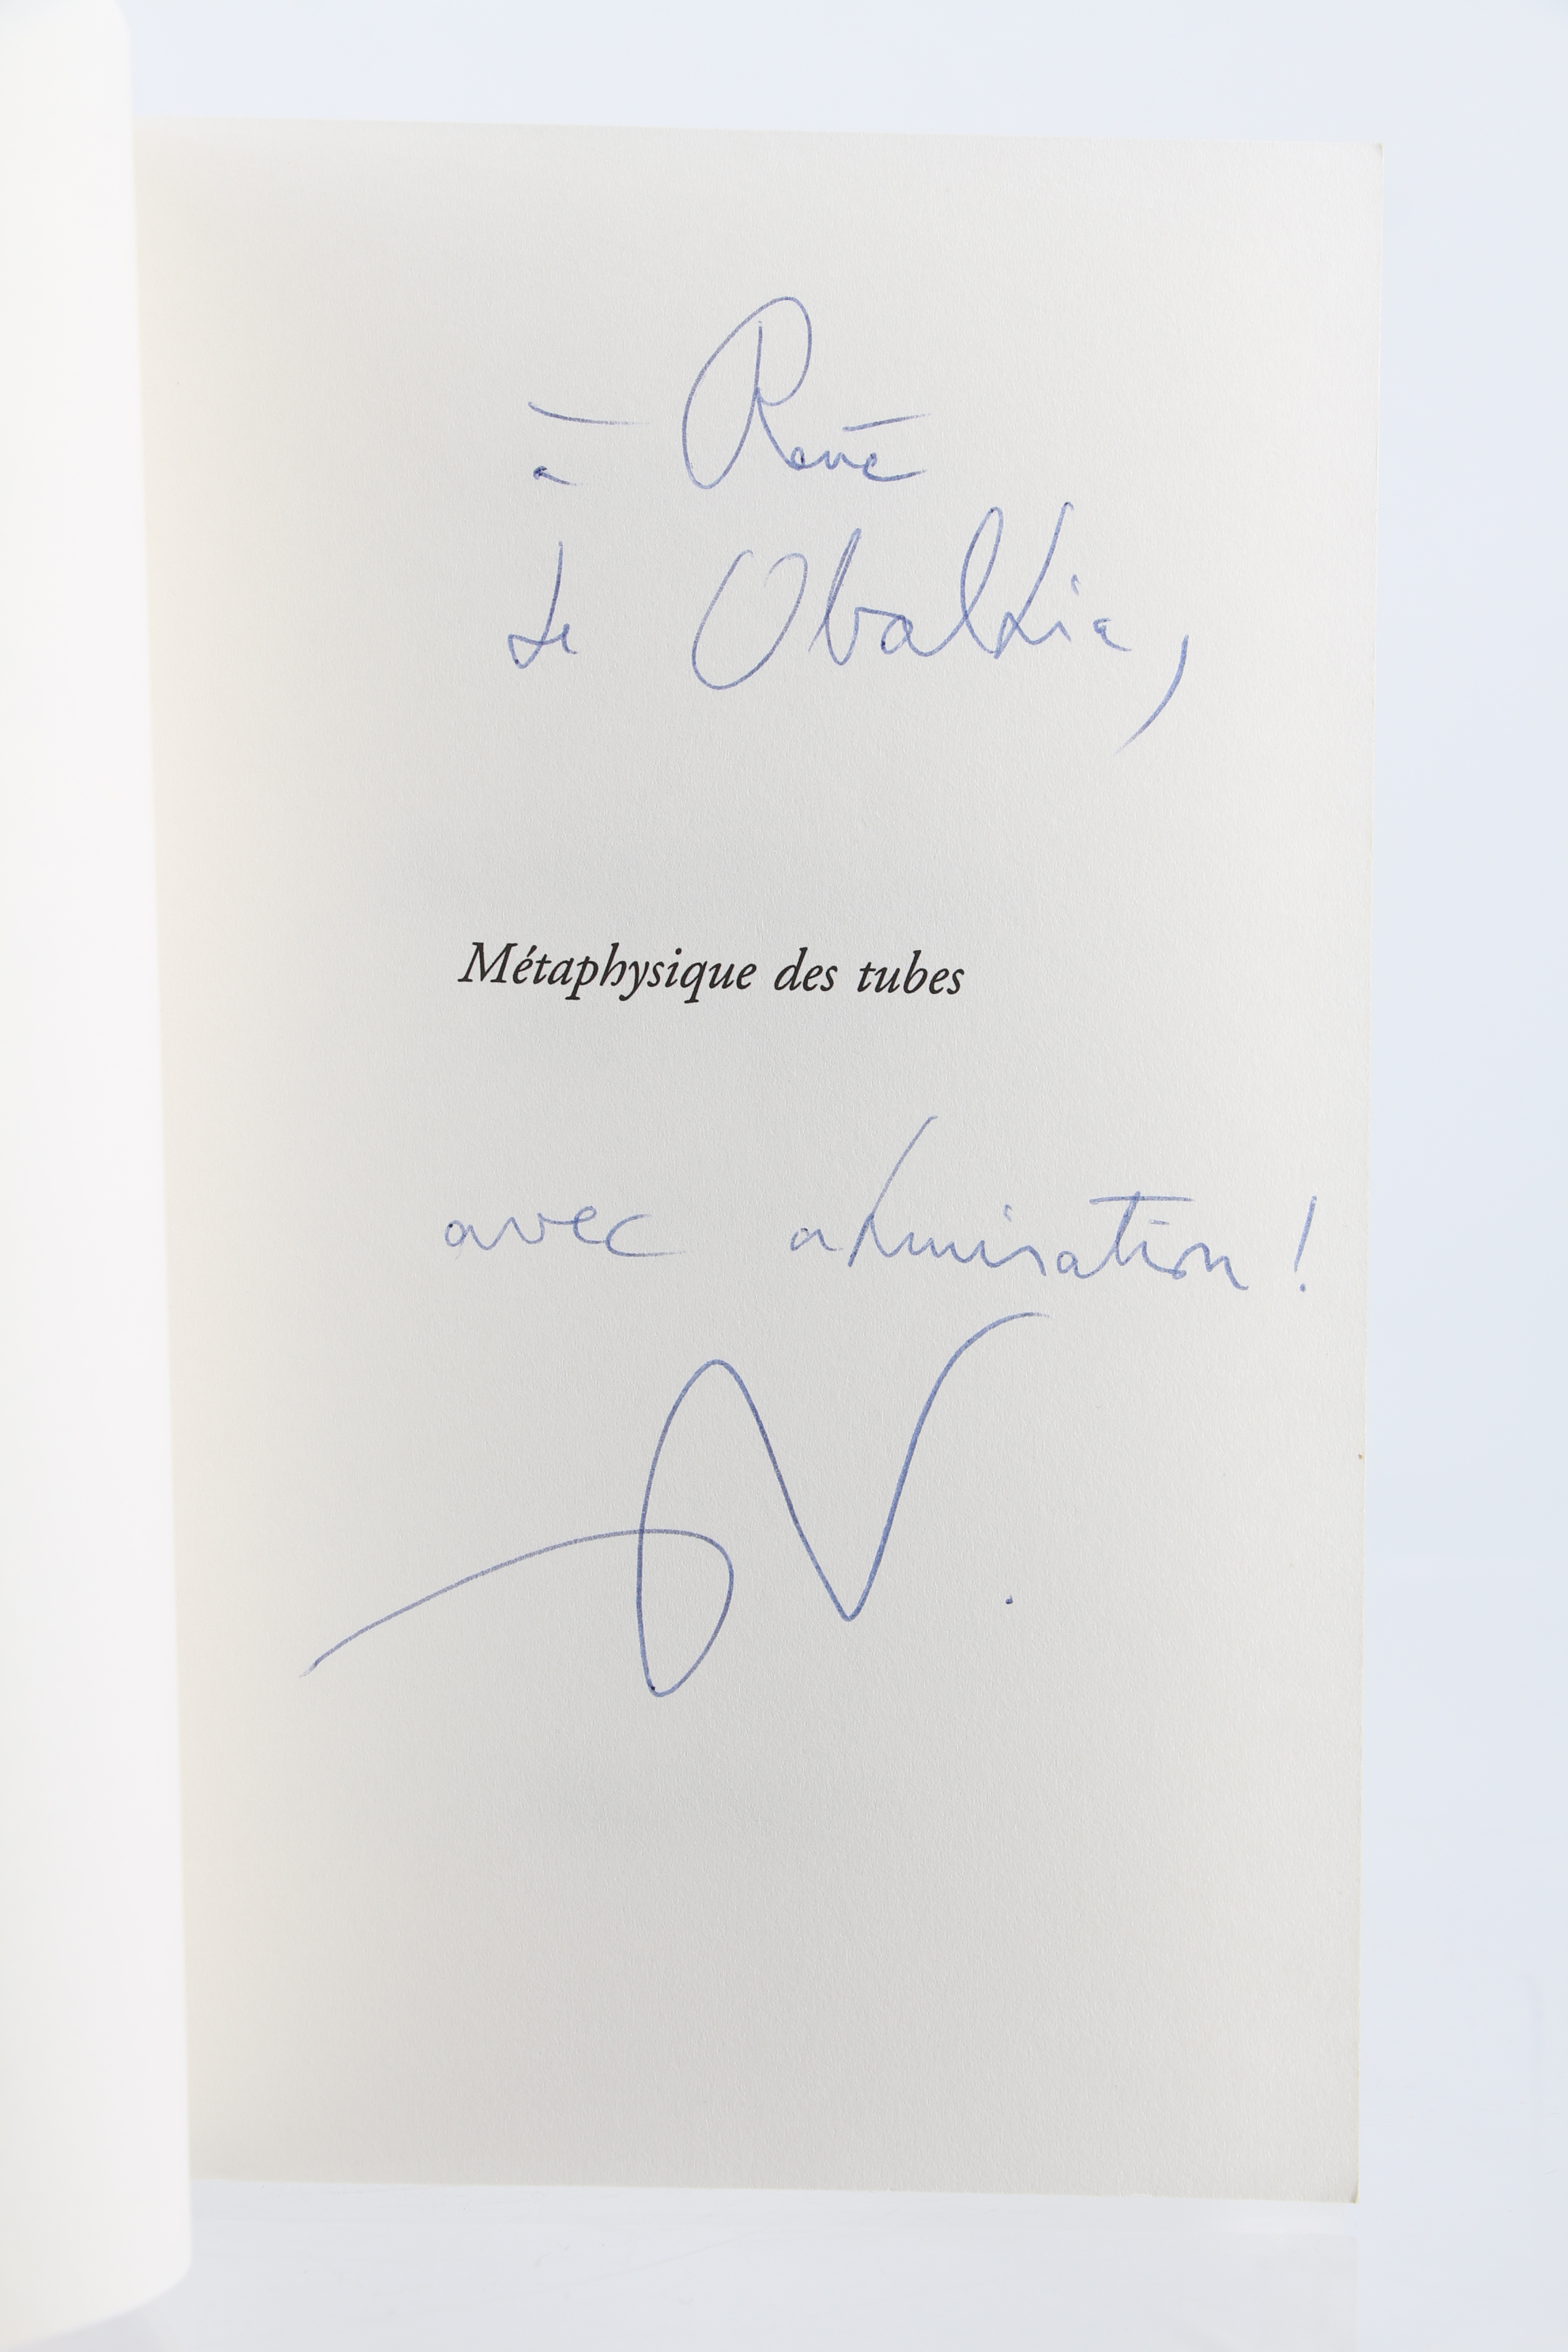 à René
de Obaldia,
Métaphysique des tubes
avec admiration !